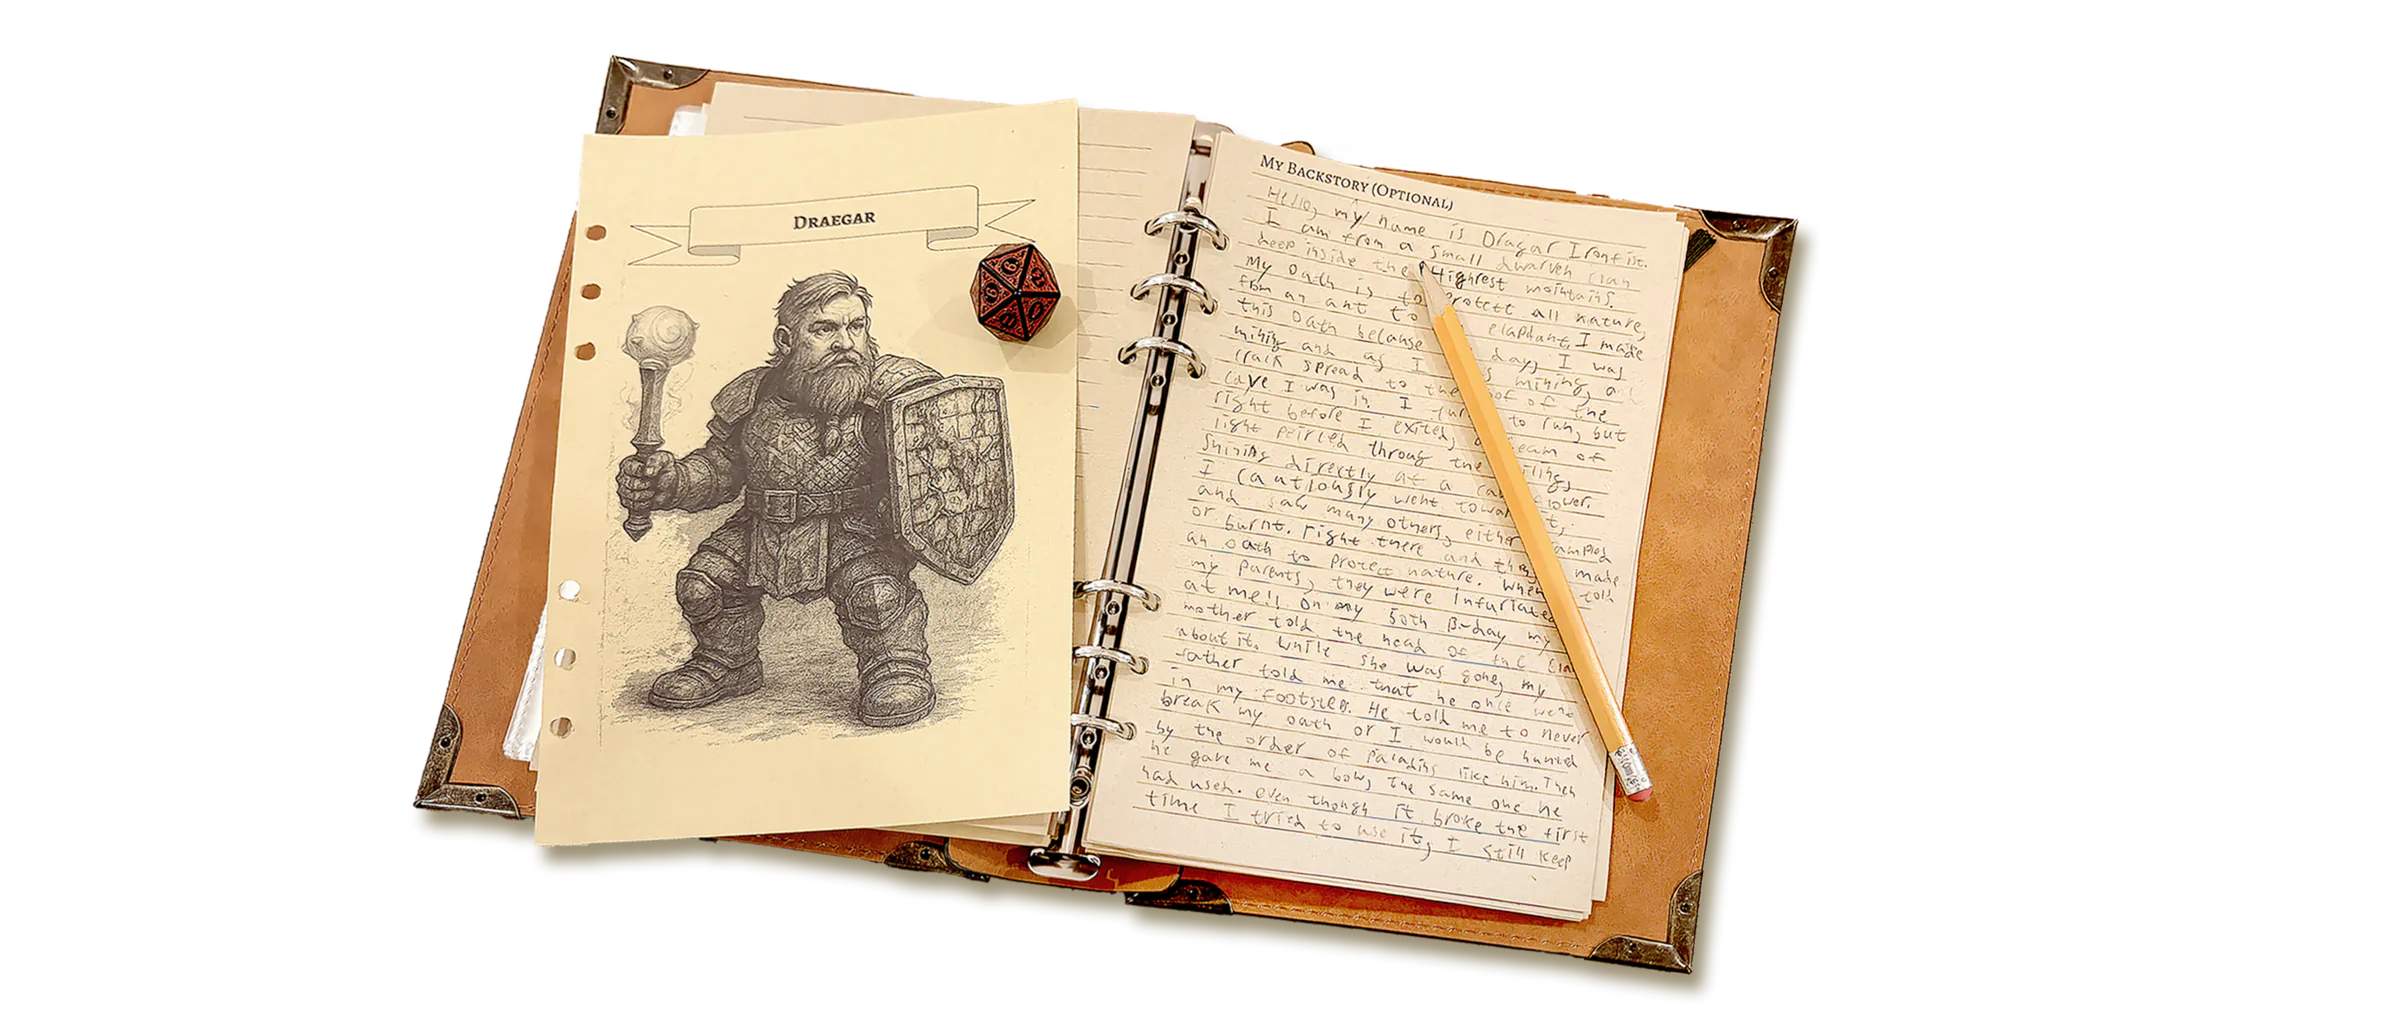 DRAEGAR
MY BACKSTORY (OPTIONAL)
Hello, my name is Dragar Ironfist.
I am from a small dwarven clan
deep inside the Highest mointains.
My Oath is to protect all nature,
from an ant to elaphant. I made
this Oath because day, I was
mining and as I mining, a
crack spread to the of the
cave I was in. I to run, but
right before I exited, a eam of
light peirced throug the iling,
Shining directly at a flower.
I cautiously went t,
and saw many others, either ampled
or burnt. right there and then made
an oath to protect nature. when told
my parents, they were infuriated
at me!! On my 50th B-day my
mother told the head of the clan
about it. While she was gone, my
father told me that he once went
in my footstep. He told me to never
break my oath or I would be hunted
by the order of Paladins like him. Then
he gave me a bow, the same one he
had used. even though it broke the first
time I tried to use it, I still keep